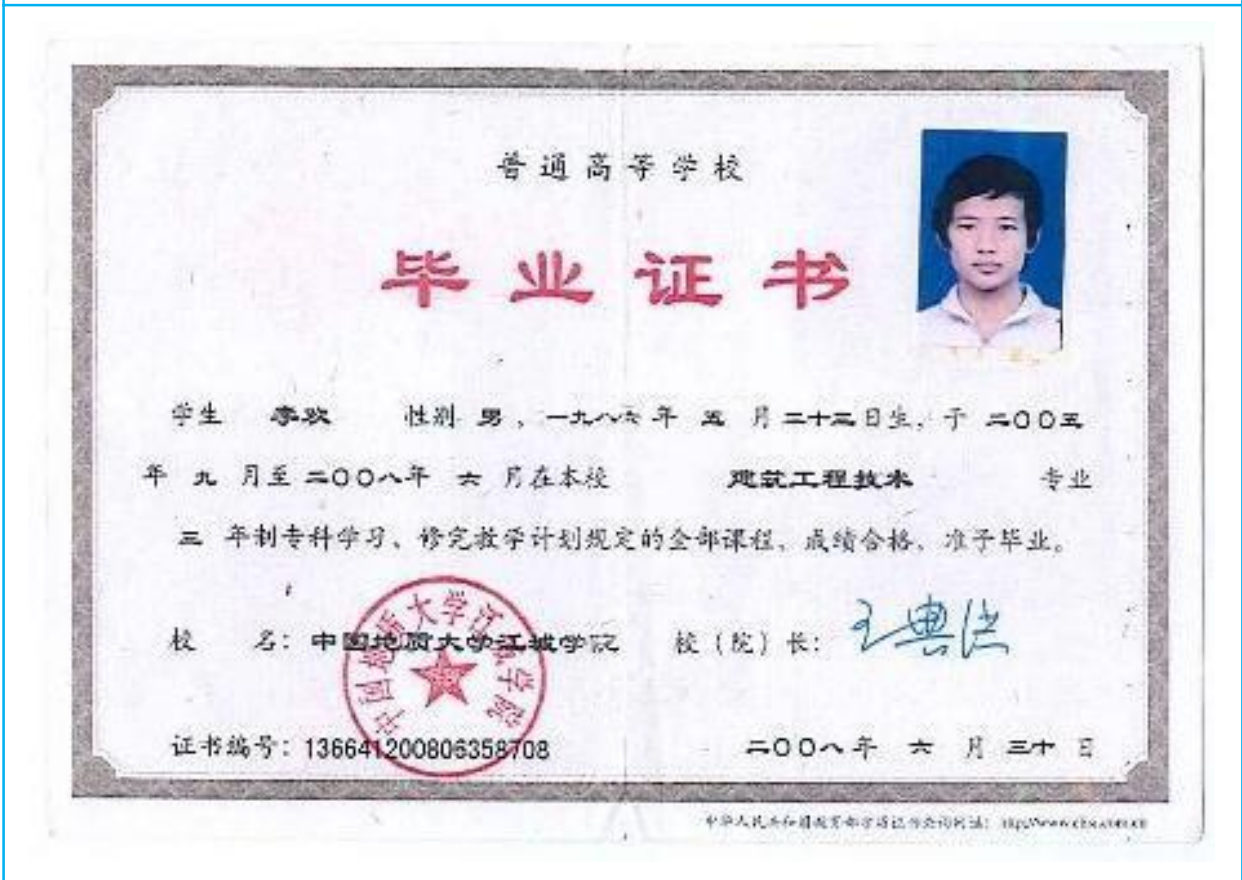 普通高等学校
毕业证书
学生 李欢 性别 男，一九八六年 五 月二十三日生，于 二〇〇五
年 九 月至 二〇〇八年 六 月在本校 建筑工程技术 专业
三 年制专科学习、修完教学计划规定的全部课程，成绩合格，准予毕业。
校 名：中国地质大学江城学院 校（院）长：王典洪
中国地质大学江城学院
证书编号：136641200806358708 二〇〇八年 六 月 三十 日
中华人民共和国教育部学历证书查询网址：http://www.chsi.com.cn